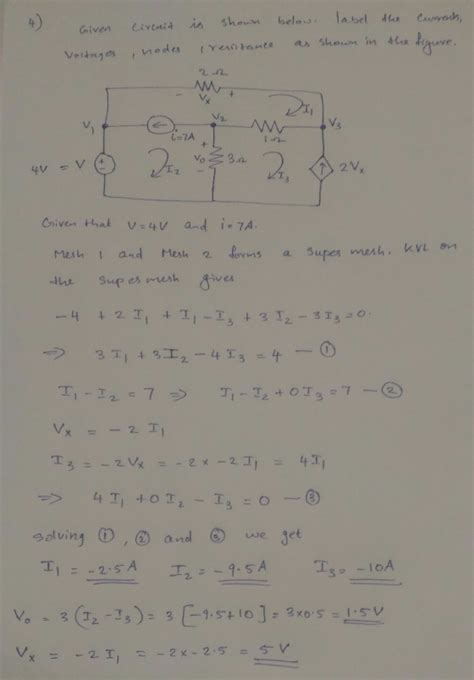 4) Given Circuit is shown below. label the currents,
voltages, nodes, resistance as shown in the figure.
2Ω
- Vx +
I1
V1
i=7A
V2
1Ω
V3
4V = V
+
-
I2
+
V0
-
3Ω
I3
2Vx
Given that V=4V and i=7A.
Mesh 1 and Mesh 2 forms a super mesh. KVL on
the super mesh gives
-4 + 2I1 + I1 - I3 + 3I2 - 3I3 = 0.
=> 3I1 + 3I2 - 4I3 = 4 — ①
I1 - I2 = 7 => I1 - I2 + 0I3 = 7 — ②
Vx = -2I1
I3 = -2Vx = -2x -2I1 = 4I1
=> 4I1 + 0I2 - I3 = 0 — ③
solving ①, ② and ③ we get
I1 = -2.5A I2 = -9.5A I3 = -10A
V0 = 3(I2 - I3) = 3[-9.5+10] = 3x0.5 = 1.5V
Vx = -2I1 = -2x-2.5 = 5V